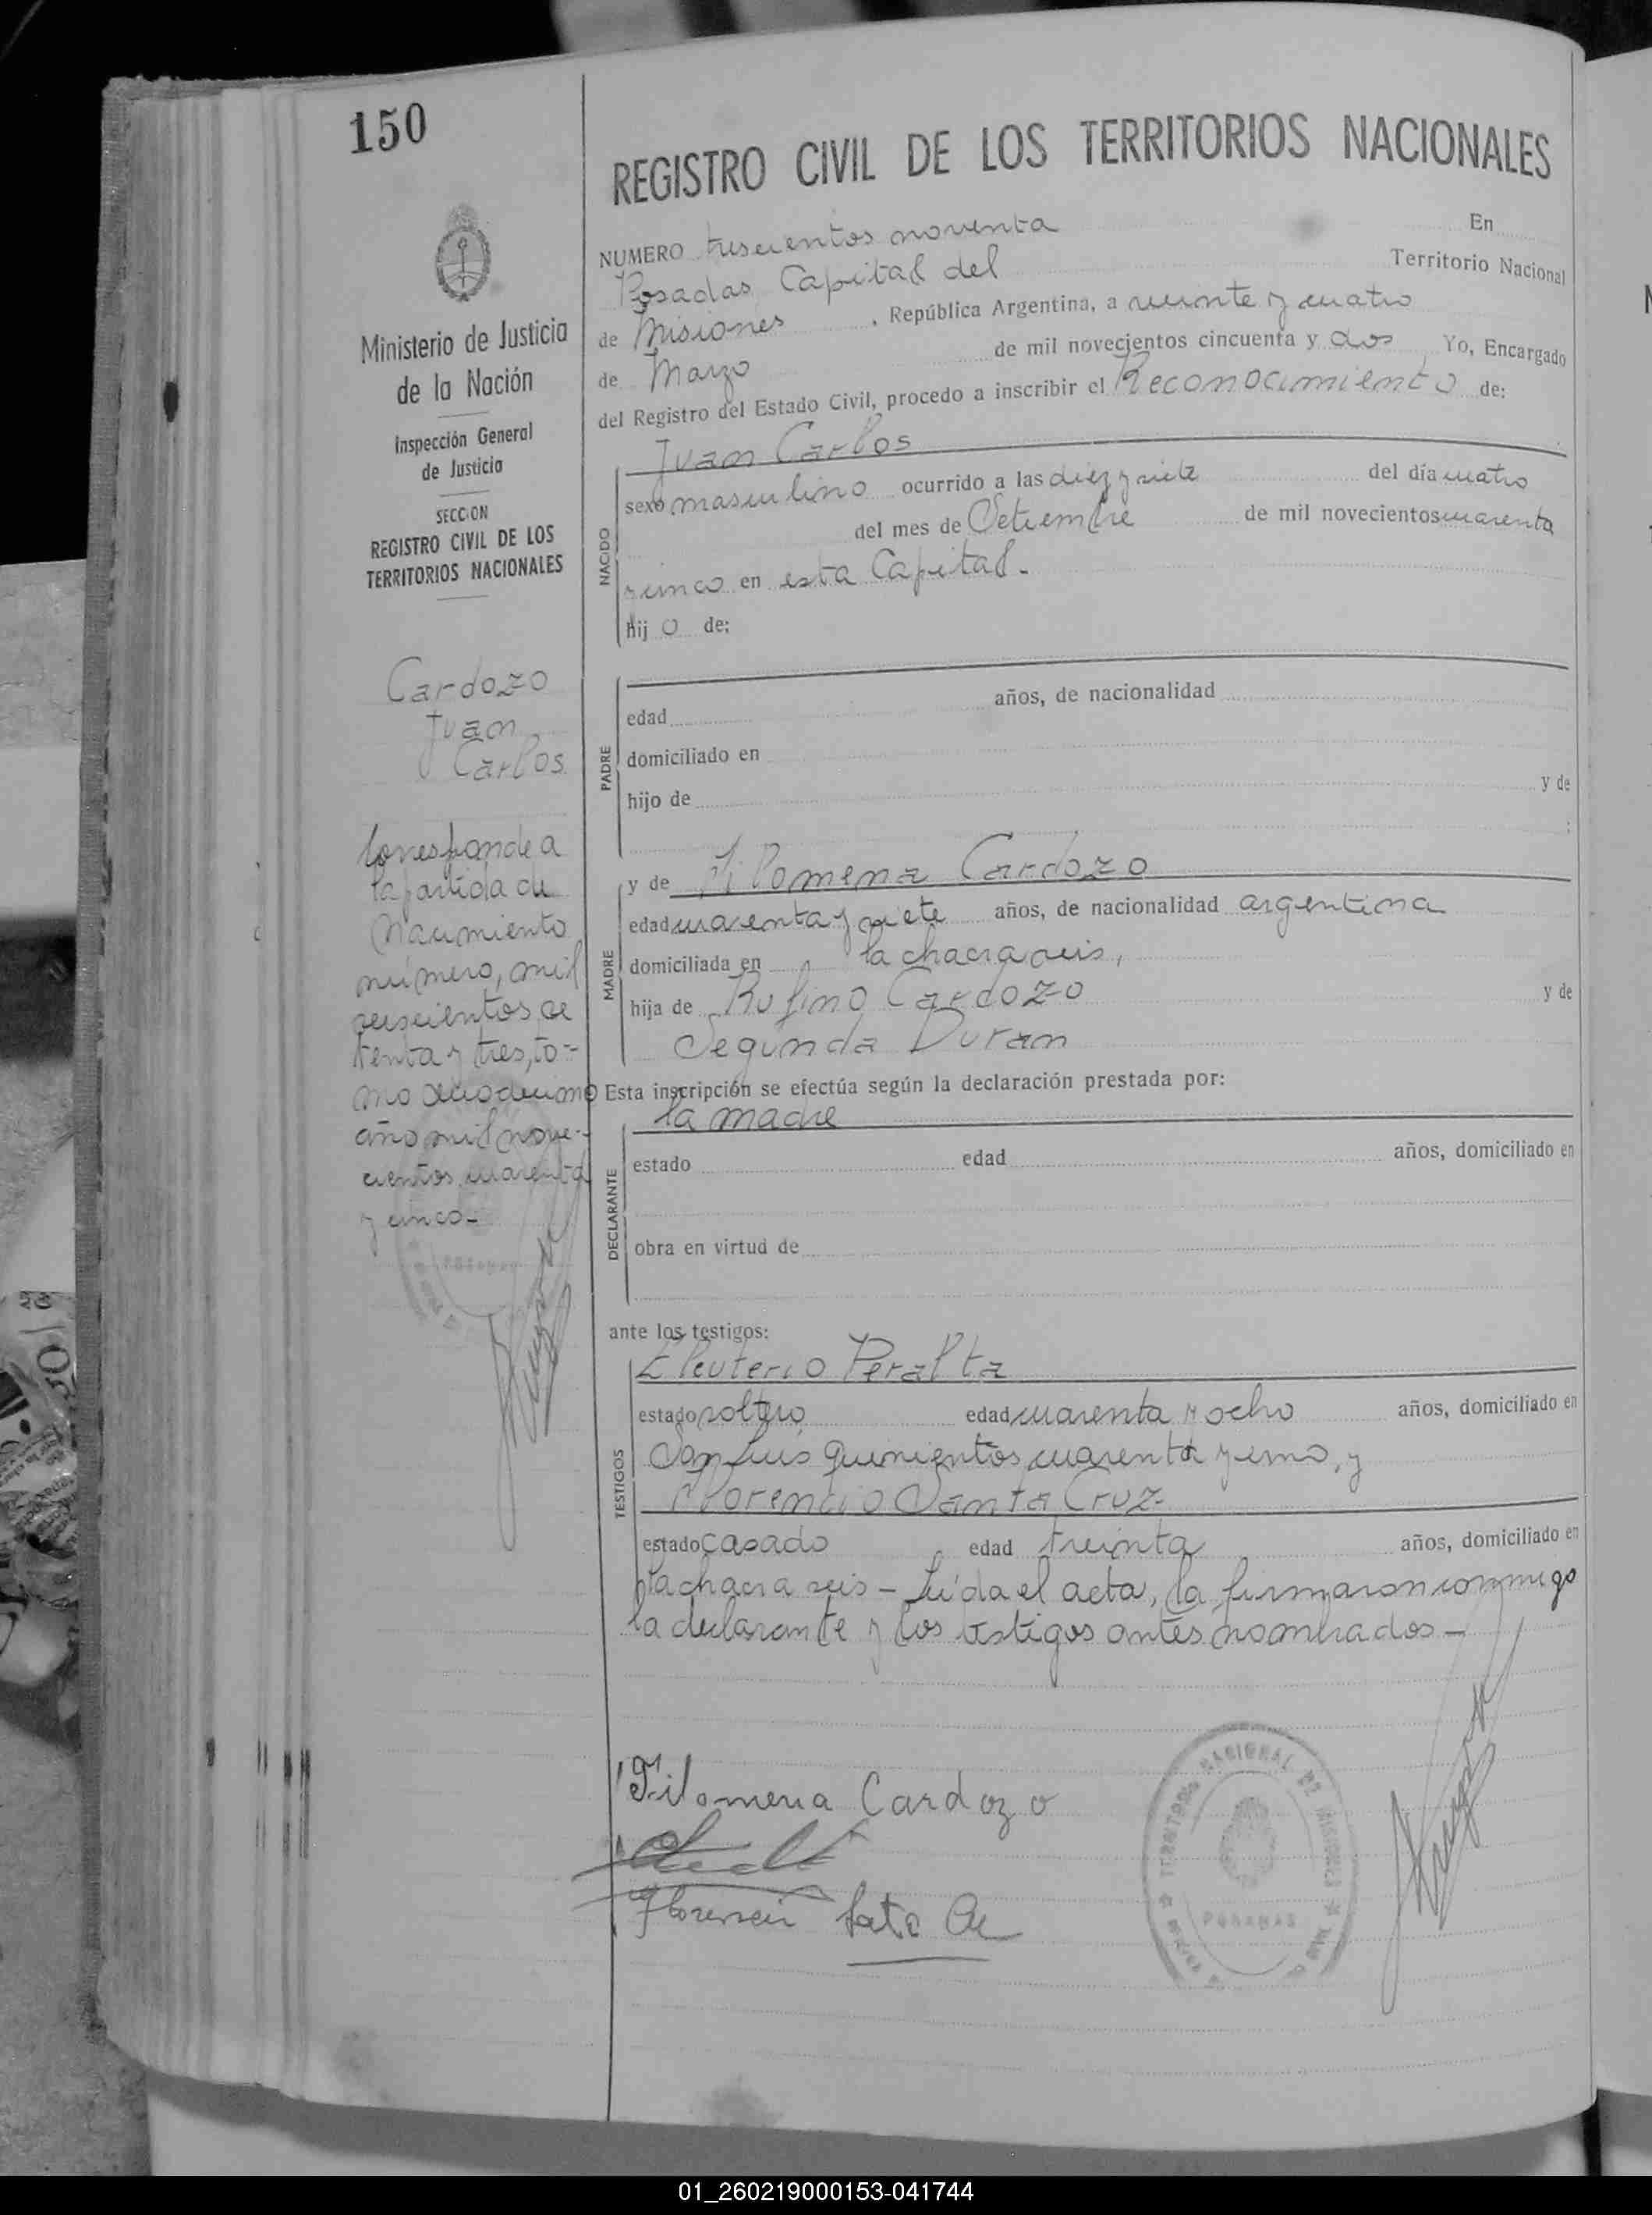 150
REGISTRO CIVIL DE LOS TERRITORIOS NACIONALES
Ministerio de Justicia
de la Nación
Inspección General
de Justicia
SECCION
REGISTRO CIVIL DE LOS
TERRITORIOS NACIONALES
Cardozo
Juan
Carlos
Corresponde a
la partida de
Nacimiento
número, mil
seiscientos se
tenta y tres, to-
mo
año mil nove-
cientos cuarenta
y cinco-
NUMERO trescientos noventa En
Posadas Capital del Territorio Nacional
de Misiones, República Argentina, a veinte y cuatro
de Marzo de mil novecientos cincuenta y dos Yo, Encargado
del Registro del Estado Civil, procedo a inscribir el Reconocimiento de:
Juan Carlos
NACIDO
sexo masculino ocurrido a las diez y siete del día cuatro
del mes de Setiembre de mil novecientos cuarenta
y cinco en esta Capital.
hijo de:
PADRE
edad años, de nacionalidad
domiciliado en
hijo de y de
;
MADRE
y de Filomena Cardozo
edad cuarenta y siete años, de nacionalidad argentina
domiciliada en la chacra seis,
hija de Rufino Cardozo y de
Segunda Duran
Esta inscripción se efectúa según la declaración prestada por:
la madre
DECLARANTE
estado edad años, domiciliado en
obra en virtud de
ante los testigos:
TESTIGOS
Eleuterio Peralta
estado soltero edad cuarenta y ocho años, domiciliado en
San Luis quinientos cuarenta y uno, y
Florencio Santa Cruz
estado casado edad treinta años, domiciliado en
la chacra seis - Leída el acta, la firmaron conmigo
la declarante y los testigos antes nombrados -
Filomena Cardozo
TERRITORIO NACIONAL DE MISIONES
POSADAS
01_260219000153-041744